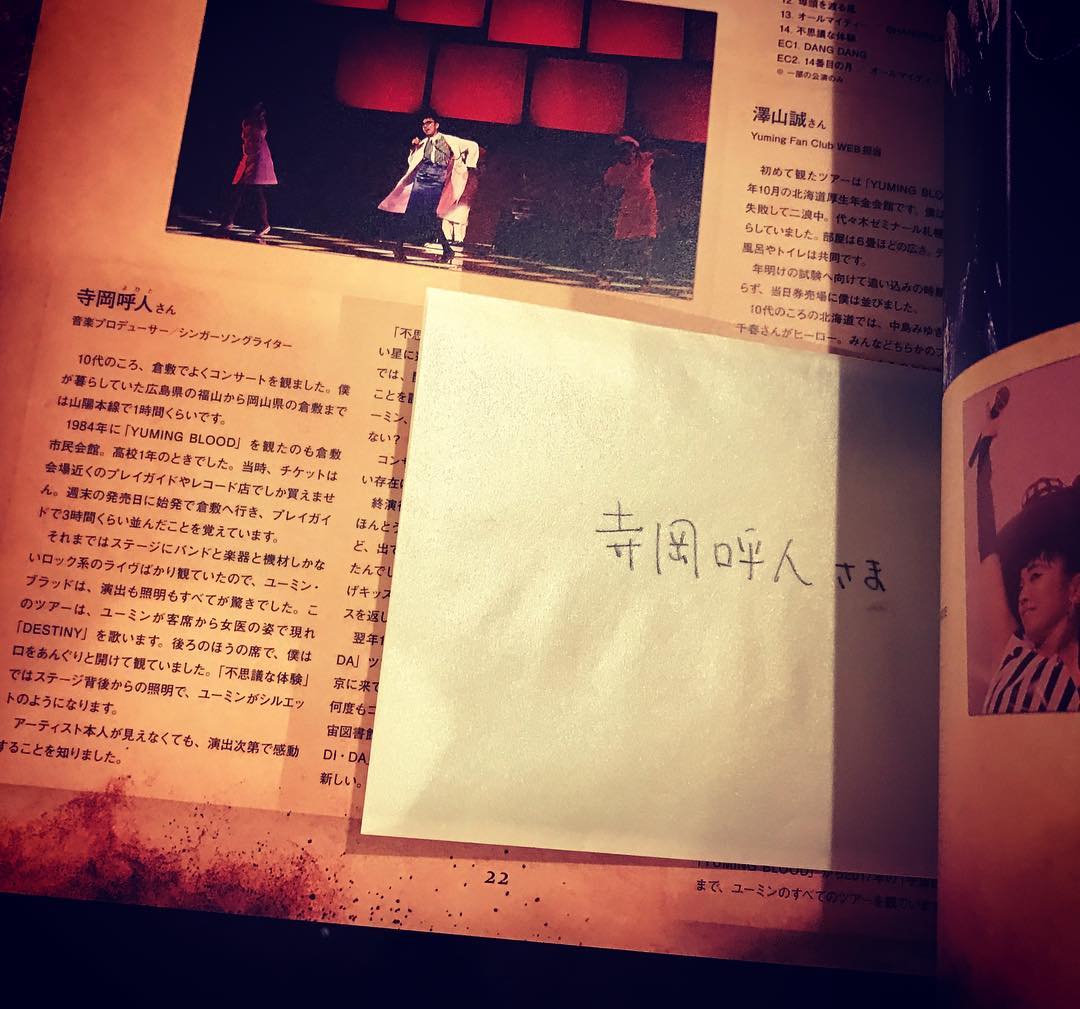 12. 埠頭を渡る風
13. オールマイティー
14. 不思議な体験
EC1. DANG DANG
EC2. 14番目の月
オールマイティ
※ 一部の公演のみ
澤山誠さん
Yuming Fan Club WEB担当
初めて観たツアーは「YUMING BLOO
年10月の北海道厚生年金会館です。僕は
失敗して二浪中。代々木ゼミナール札幌
らしていました。部屋は6畳ほどの広さ。テ
風呂やトイレは共同です。
年明けの試験へ向けて追い込みの時期
らず、当日券売場に僕は並びました。
10代のころの北海道では、中島みゆき
千春さんがヒーロー。みんなどちらかのフ
よひと
寺岡呼人さん
音楽プロデューサー/シンガーソングライター
10代のころ、倉敷でよくコンサートを観ました。僕
が暮らしていた広島県の福山から岡山県の倉敷まで
は山陽本線で1時間くらいです。
1984年に「YUMING BLOOD」を観たのも倉敷
市民会館。高校1年のときでした。当時、チケットは
会場近くのプレイガイドやレコード店でしか買えませ
ん。週末の発売日に始発で倉敷へ行き、プレイガイ
ドで3時間くらい並んだことを覚えています。
それまではステージにバンドと楽器と機材しかな
いロック系のライヴばかり観ていたので、ユーミン・
ブラッドは、演出も照明もすべてが驚きでした。こ
のツアーは、ユーミンが客席から女医の姿で現れ
「DESTINY」を歌います。後ろのほうの席で、僕は
口をあんぐりと開けて観ていました。「不思議な体験」
ではステージ背後からの照明で、ユーミンがシルエッ
トのようになります。
アーティスト本人が見えなくても、演出次第で感動
することを知りました。
「不思
い星に
では、
ことを
ーミン、
ない?
コンサ
い存在
終演後
ほんと
ど、出
たんでし
げキッ
スを返し
翌年1
DA」ツ
京に来て
何度もコ
宙図書館
DI・DA
新しい。
寺岡呼人さま
「YUMING BLOOD」から2017年の「宇宙
まで、ユーミンのすべてのツアーを観ています
22